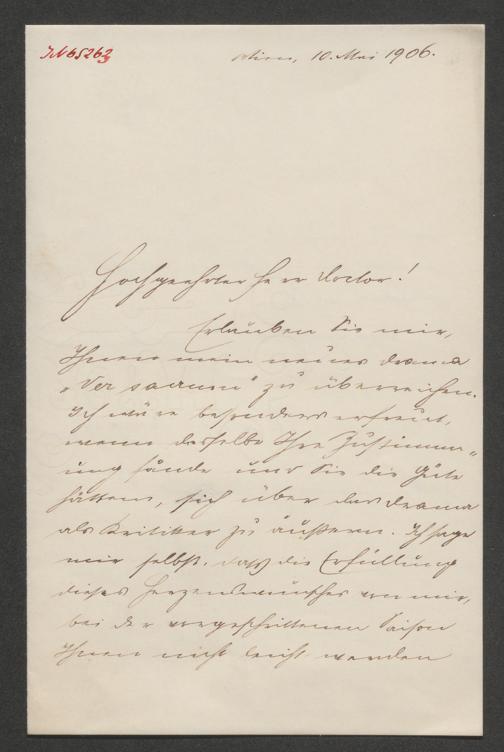 IN 65263
Wien, 10. Mai 1906.
Hochgeehrter Herr Doctor!
Erlauben Sie mir,
Ihnen mein neues Drama
„Ver sacrum" zu überreichen.
Ich wäre besonders erfreut,
wenn dasselbe Ihre Zustimm„
ung fände und Sie die Güte
hätten, sich über das Drama
als Kritiker zu äußern. Ich sage
mir selbst, daß die Erfüllung
dieses Herzenswunsches von mir,
bei der vorgeschrittenen Saison
Ihnen nicht leicht werden